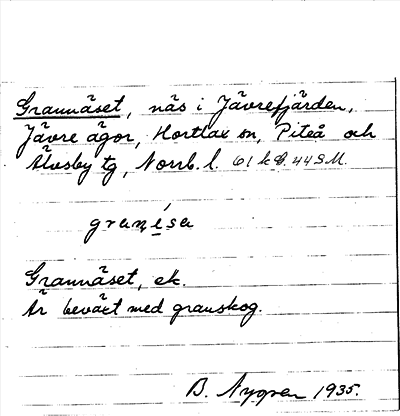 Grannäset, näs i Jävrefjärden,
Jävre ägor, Hortlax sn, Piteå och
Älvsby tg, Norrb. l. 61 k G. 44 S M.
granı̣sa
Grannäset, ek.
Är beväxt med granskog.
B. Nygren 1935.